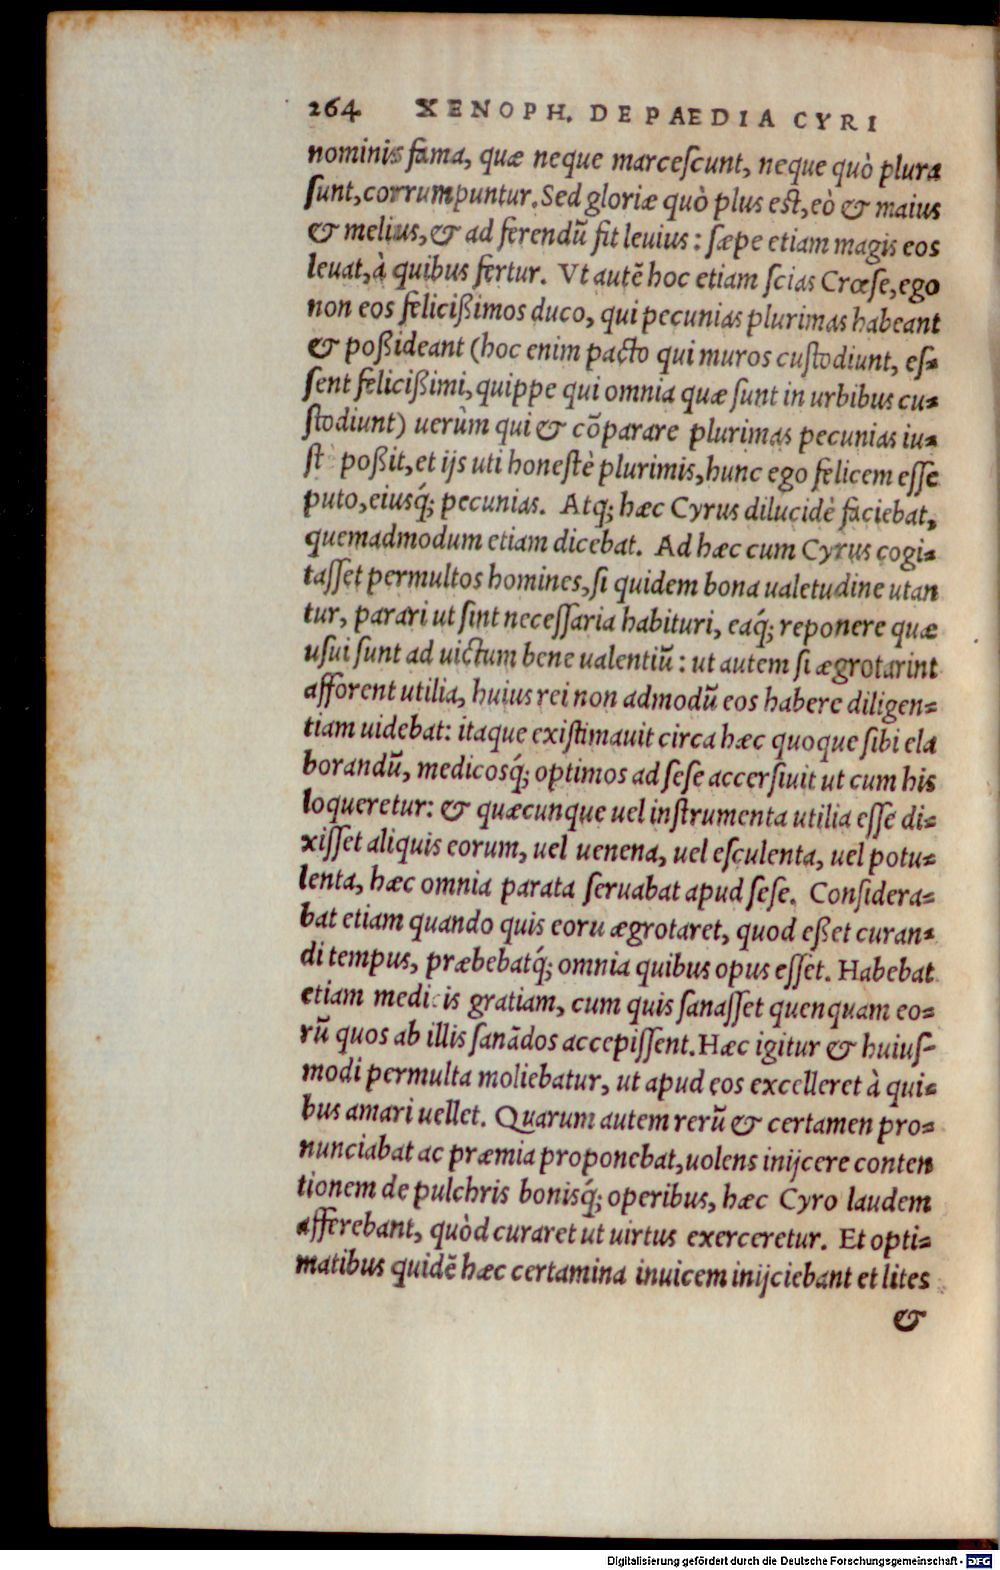 264 XENOPH. DE PAEDIA CYRI
nominis fama, quæ neque marceſcunt, neque quò plura
ſunt, corrumpuntur. Sed gloriæ quò plus eſt, eò & maius
& melius, & ad ferendū fit leuius: ſæpe etiam magis eos
leuat, à quibus fertur. Vt autē hoc etiam ſcias Crœſe, ego
non eos felicißimos duco, qui pecunias plurimas habeant
& poßideant (hoc enim pacto qui muros cuſtodiunt, eſ=
ſent felicißimi, quippe qui omnia quæ ſunt in urbibus cu=
ſtodiunt) uerùm qui & cōparare plurimas pecunias iu=
ſt poßit, et ijs uti honeſtè plurimis, hunc ego felicem eſſe
puto, eiusq́; pecunias. Atq; hæc Cyrus dilucidè faciebat,
quemadmodum etiam dicebat. Ad hæc cum Cyrus cogi=
taſſet permultos homines, ſi quidem bona ualetudine utan
tur, parari ut ſint neceſſaria habituri, eaq́; reponere quæ
uſui ſunt ad uictum bene ualentiū: ut autem ſi ægrotarint
afforent utilia, huius rei non admodū eos habere diligen=
tiam uidebat: itaque exiſtimauit circa hæc quoque ſibi ela
borandū, medicosq́; optimos ad ſeſe accerſiuit ut cum his
loqueretur: & quæcunque uel inſtrumenta utilia eſſe di=
xiſſet aliquis eorum, uel uenena, uel eſculenta, uel potu=
lenta, hæc omnia parata ſeruabat apud ſeſe. Conſidera=
bat etiam quando quis eoru ægrotaret, quod eßet curan=
di tempus, præbebatq́; omnia quibus opus eſſet. Habebat
etiam medicis gratiam, cum quis ſanaſſet quenquam eo=
rū quos ab illis ſanādos accepiſſent. Hæc igitur & huiuſ-
modi permulta moliebatur, ut apud eos excelleret à qui=
bus amari uellet. Quarum autem rerū & certamen pro=
nunciabat ac præmia proponebat, uolens inijcere conten
tionem de pulchris bonisq́; operibus, hæc Cyro laudem
afferebant, quòd curaret ut uirtus exerceretur. Et opti=
matibus quidē hæc certamina inuicem inijciebant et lites
&
Digitalisierung gefördert durch die Deutsche Forschungsgemeinschaft - DFG